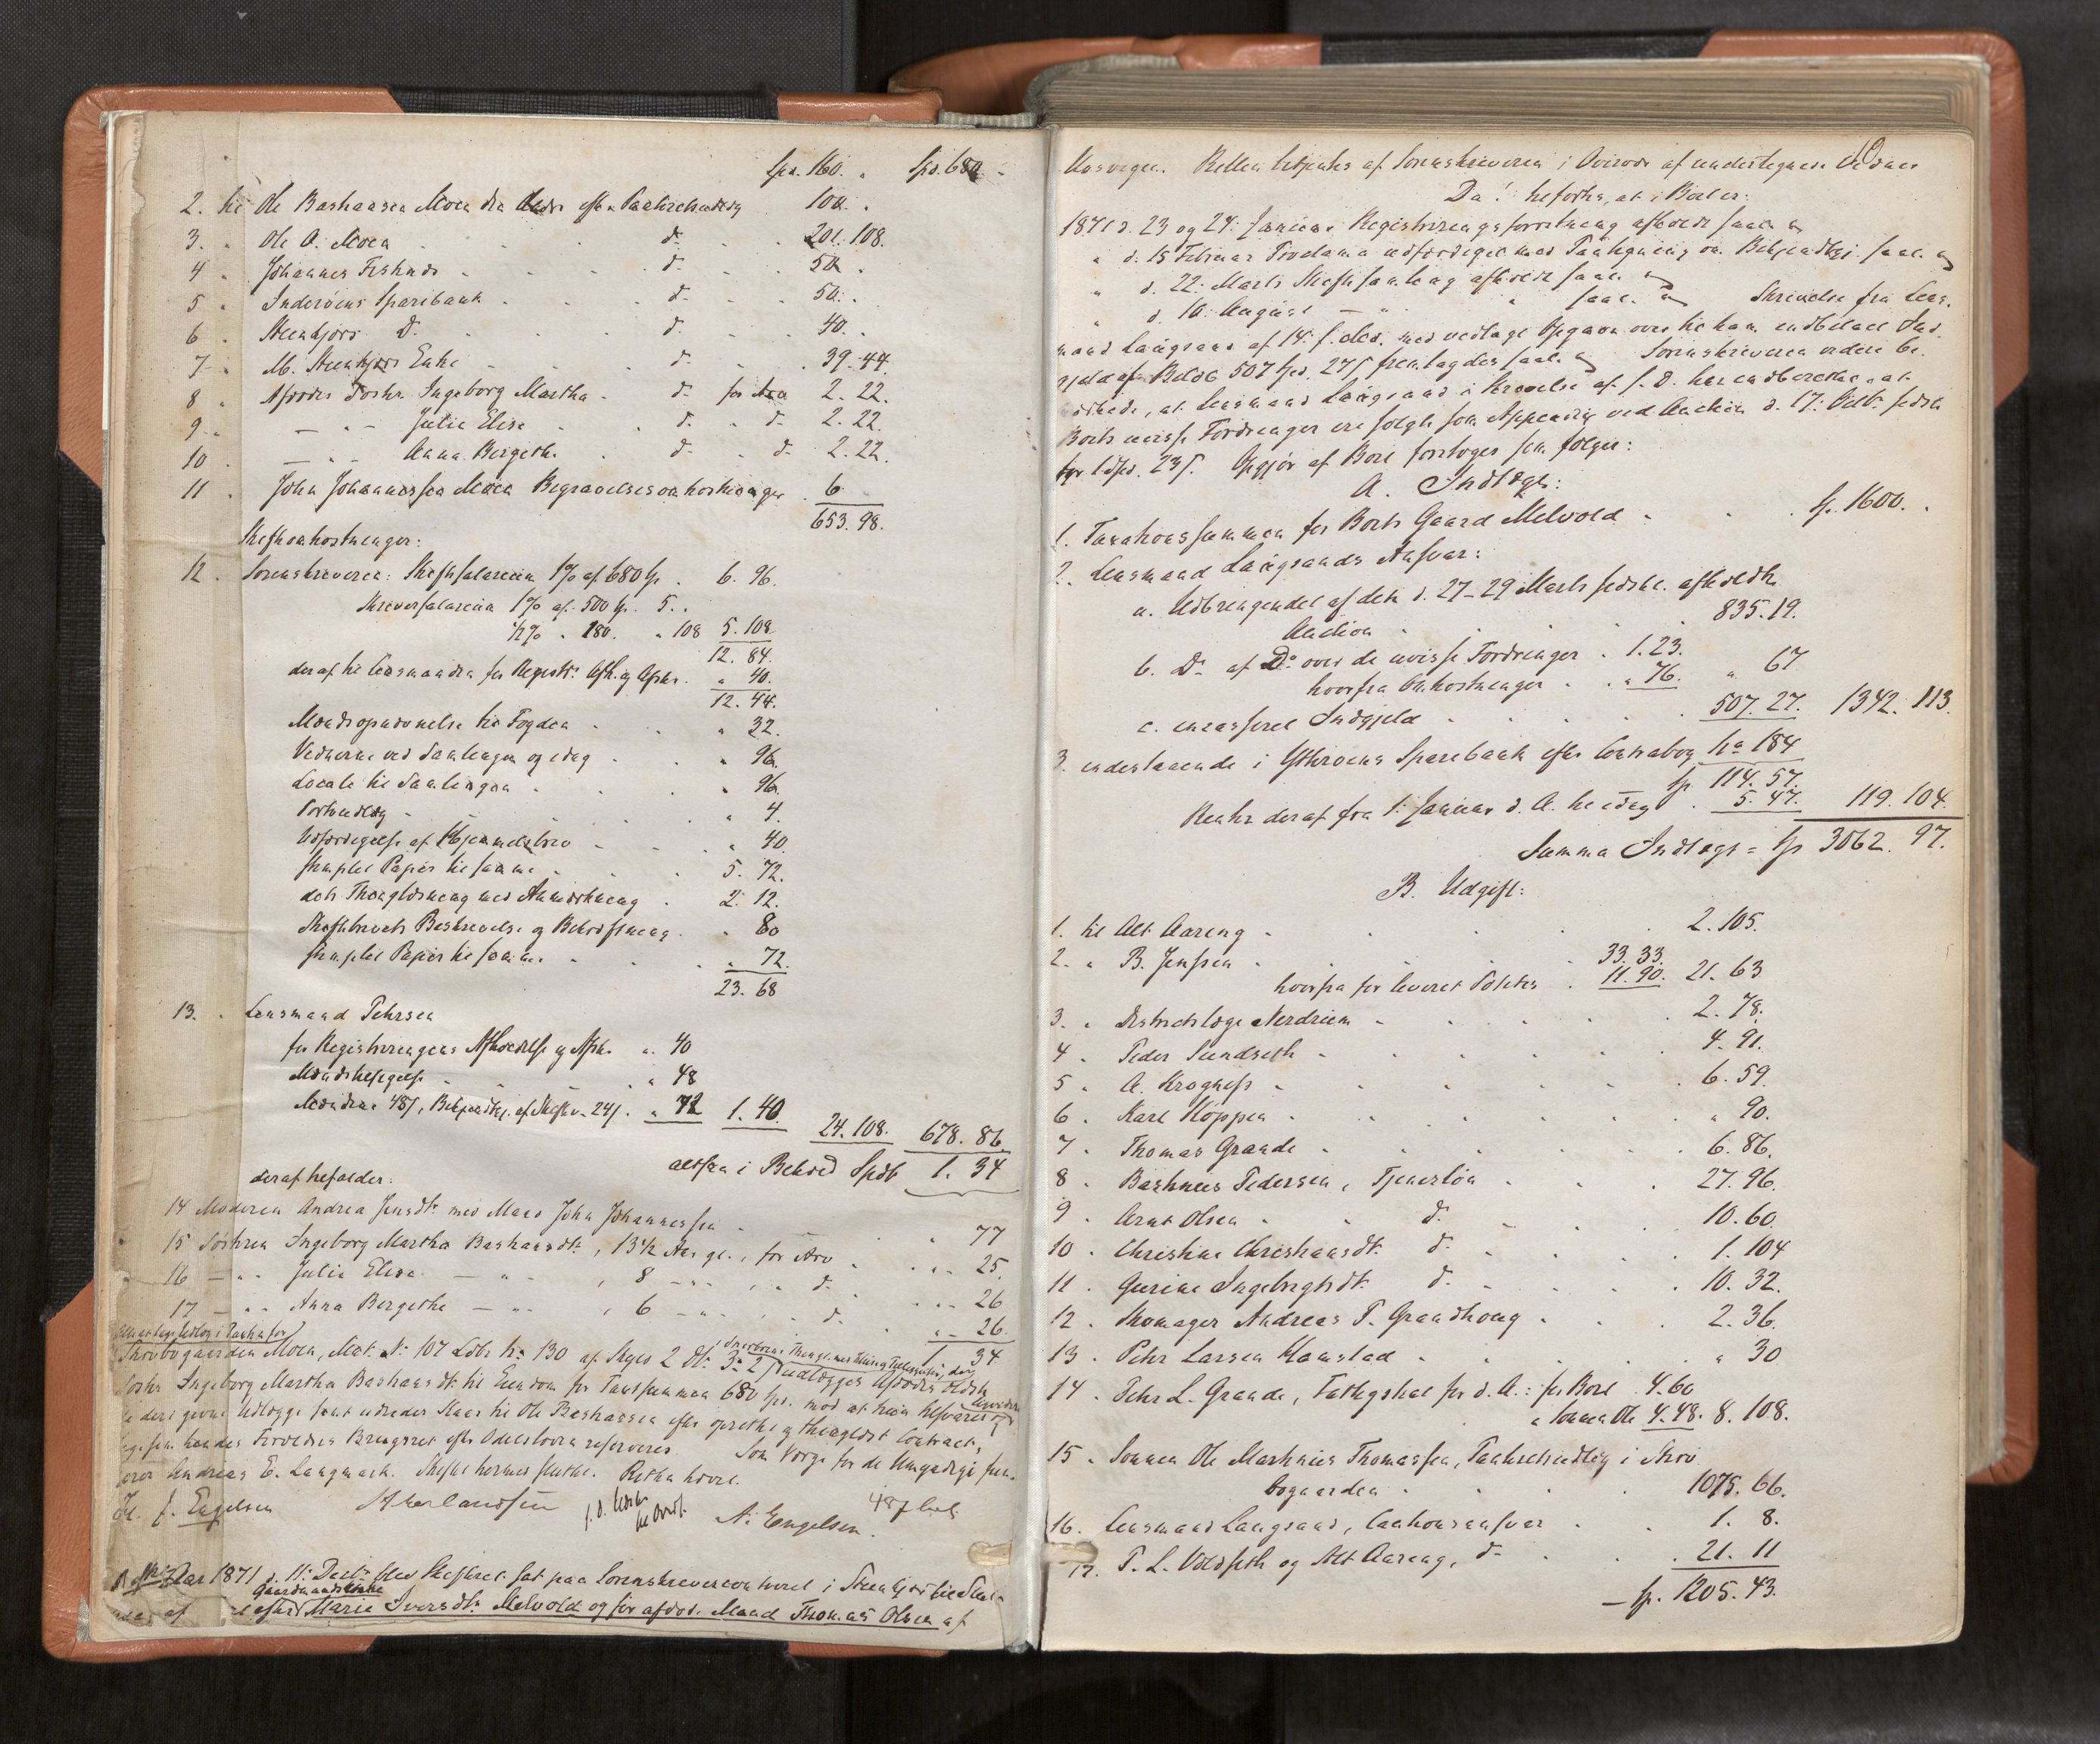 Spd. 160. „ Spd. 680 „
2. til Ole Bastiansen Moen den Ældre efter Panteheftelse 100. „
3. „ Ole A. Moen do 201. 108.
4 „ Johannes do 50. „
5 „ Inderøens Sparebank do 50. „
6 „ Steenkjær Do. do 40. „
7 „ M. Steenkjær Enke do 39. 44.
8 „ Afdødes Datter Ingeborg Martha do for Arv 2. 22.
9 „ — „ — Julie Elise do do 2. 22.
10 „ — „ — Anna Bergethe do do 2. 22.
11 „ John Johannessen Moen Begravelsesomkostninger 6
653. 98.
Skifteomkostninger:
12. Sorenskriveren: Skiftesalarium 1% af 680 Sp. 6. 96.
Skriversalarium 1% af 500 Sp. 5. „
½% „ 180. „ 108 5. 108.
12. 84.
deraf til Lensmanden for Registr. Afh. og Afskr. „ 40.
12. 44.
Mændsopnævnelse til Fogden „ 32.
Vidnerne ved Samlingen og idag „ 96.
Locale til Samlingen „ 96.
Portoudlæg „ 4
Udfærdigelse af Hjemmelsbrev „ 40.
stemplet Papir til samme 5. 72.
dets Thinglæsning med Anmærkning 2. 12.
Skiftebrevets Beskrivelse og Bekræftning „ 80
stemplet Papir til samme „ 72.
23. 68
13. „ Lensmand Pehrsen
for Registreringens Afholdelse og Afskr. „ 40
Mændstilsigelse „ 48
Mændene 48 s, Bekjendtgj. af Skiftesv. 24 s. „ 72 1. 40. 24. 108. 678. 86
altsaa i Behold Spd. 1. 34
deraf tilfalder:
14 Moderen Andrea Jensdtr. med Mand John Johannessen „ 77
15 Døttrene Ingeborg Martha Bastiansdtr., 13½ Aar gl., for Arv „ 25.
16 — „ — Julie Elise — „ — , 8 — „ — , do „ 26
17 — „ — Anna Bergethe — „ — , 6 — „ — , do „ 26.
1 34
Skovbogaarden Moen, Mat. No 107 Løbe No 130 af Skyld 2 Dlr. 3 2 s udlægges Afdødes ældste
Datter Ingeborg Martha Bastiansdtr. til Eiendom for Taxtsummen 680 Spd. mod at hun tilsvarer
de deri givne Udlægge samt udreder Kaar til Ole Bastiansen efter oprettet og thinglæst Contract,
ligesom hendes Brugsret efter Odelsloven reserveres. Som Værge for de Umyndige
Andreas E. Langmark. Skiftet hermed sluttet. Retten hævet.
J. Engelsen A. Engelsen.
Aar 1871 d. 11te Decbr. blev Skifteret sat paa Sorenskrivercontoret i Steenkjær til
efter Gaardmandsenke Marie Iversdtr. Melvold og før afdøde Mand Thomas Olsen af
Retten betjentes af Sorenskriveren i Overvær af undertegnede Vidner
Da! tilførtes, at i Boet er:
1871 d. 23 og 24. Januar Registreringsforretning afholdt saal.
„ d. 15 Februar Proclama udfærdiget med Paategning om Bekjendtgj. saal.
„ d. 22. Marts Skiftesamling afholdt saal.
„ d. 10. August — „ „ saal. Skrivelse fra Lens-
mand Langsand af 14. f. Md. med vedlagt Opgave over til ham indbetalt Ind-
gjæld af Beløb 507 Spd. 27 s fremlagdes saal. Sorenskriveren videre be-
mærkede, at Lensmand Langsand i Skrivelse af s. D. har indberettet, at
Boets uvisse Fordringer ere solgte som Appendix ved Auction d. 17. Octbr. sidstl.
for 1 Spd. 23 s. Opgjør af Boet foretoges som følger:
A. Indtægt:
1. Taxationssummen for Boets Gaard Melvold Sp. 1600. „
2. Lensmand Langsands Ansvar:
a. Udbringendet af den d. 27–29 Marts sidstl. afholdte
Auction 835. 19.
b. Do af Do over de uvisse Fordringer 1. 23.
hvorfra Omkostninger „ 76. „ 67
c. incasseret Indgjæld 507. 27. 1342. 113.
3. indestaaende i Ytterøens Sparebank efter Contrabog No 184
Sp. 114. 57.
Renter deraf fra 1. Januar d. A. til idag 5. 47. 119. 104.
Summa Indtægt = Sp 3062. 97.
B. Udgift:
1. til Alt Aareng 2. 105.
2. „ B. Jenssen 33. 33.
hvorfra for leveret 11. 90. 21. 63
3. „ Districtslæge Nerdrum 2. 78.
4 „ Peder Sundseth 4. 91.
5 „ A. Krogness 6. 59.
6 „ Karl Hoppen „ 90.
7 „ Thomas Grande 6. 86.
8 „ Bastinus Pedersen, Tjenerløn 27. 96.
9 „ Arnt Olsen do 10. 60.
10 „ Christine Christiansdt. do 1. 104
11 „ Gurine Ingebrigtsdt. do 10. 32.
12 „ Skomager Andreas P. Grandhoug 2. 36.
13 „ Pehr Larsen Hamstad „ 30
14 „ Pehr L. Grande, Fattigskat for d. A.: for Boet 4. 60
„ Sønnen Ole 4. 48. 8. 108.
15 „ Sønnen Ole Martinus Thomassen, Pantheftelse i Skov-
bogaarden 1075. 66.
16. Lensmand Langsand, Cautionsansvar 1. 8.
17. P. L. Voldseth og Alt Aareng, do 21. 11
— Sp. 1205. 43.